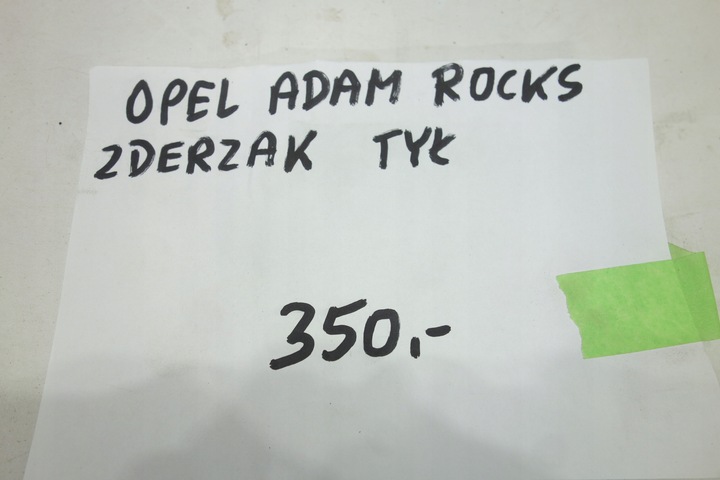 OPEL ADAM ROCKS
ZDERZAK TYŁ
350,-